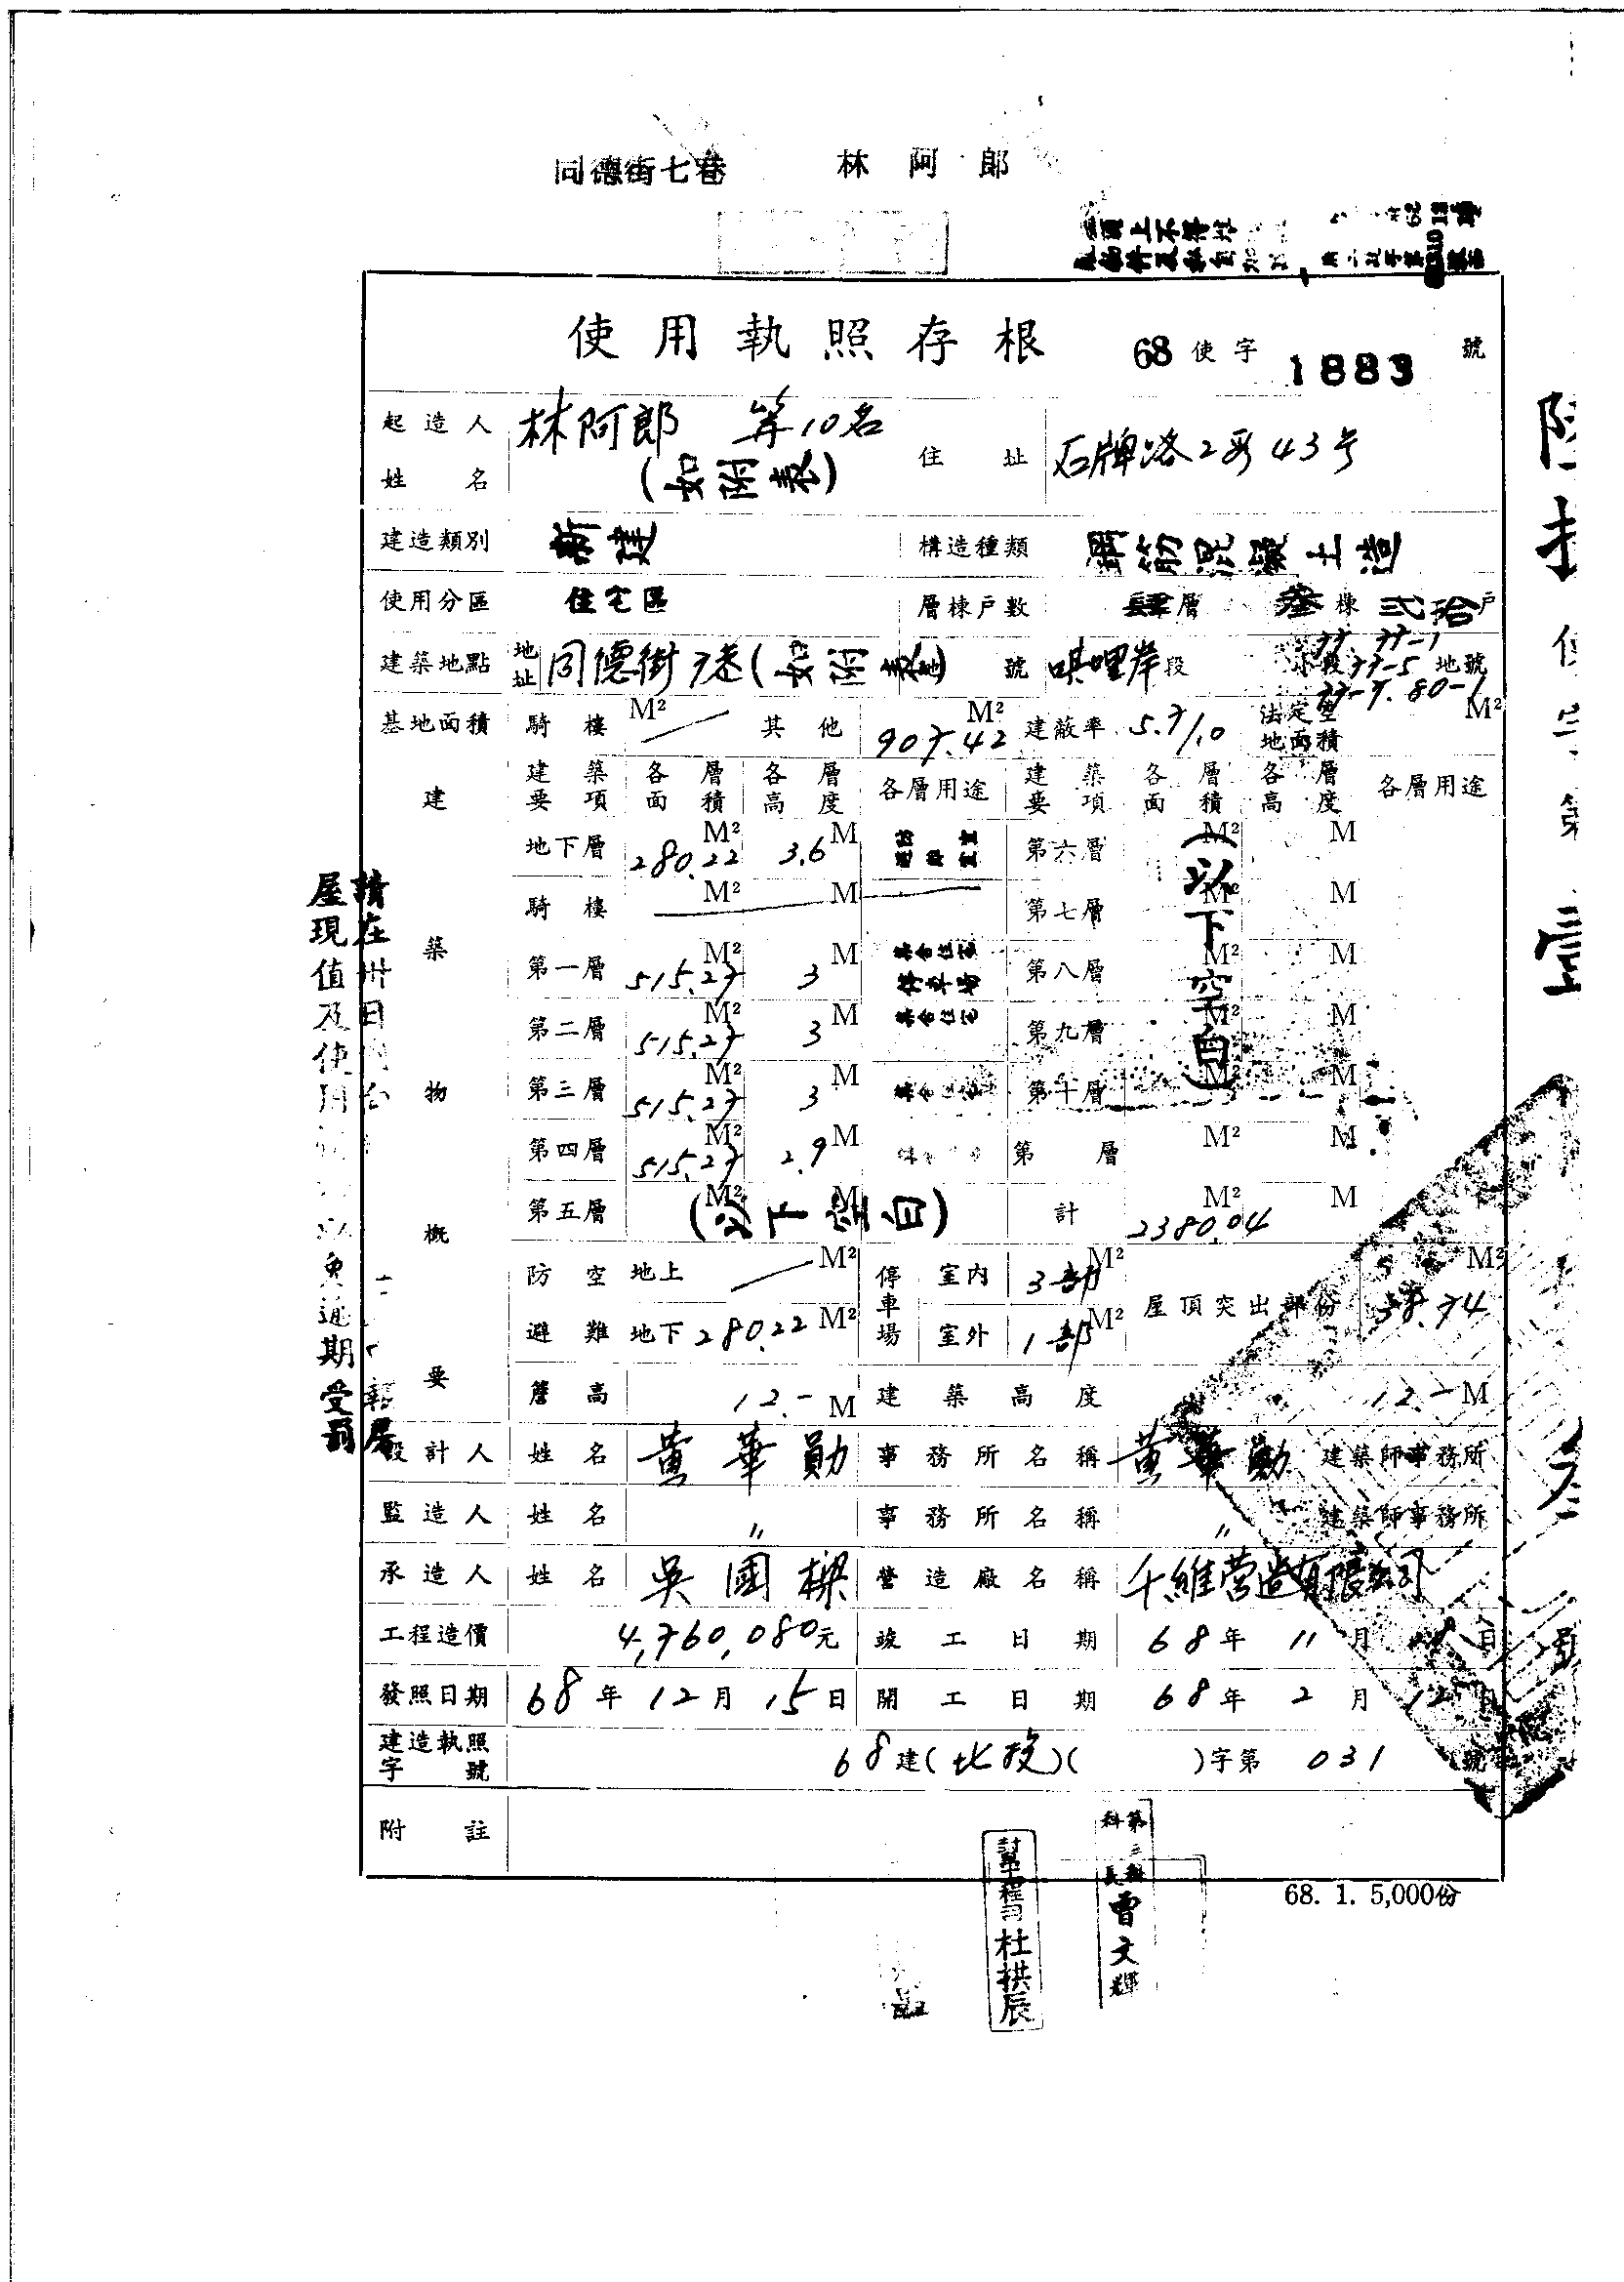 同德街七巷 林阿郎
使用執照存根 68使字 1883 號
起造人姓名 林阿郎 等10名 (如附表) 住址 石牌路2段43号
建造類別 新建 構造種類 鋼筋混凝土造
使用分區 住宅區 層棟戶數 肆層 叁棟 弍拾戶
建築地點 地址 同德街7巷(如附表) 地號 唭哩岸段 小段 77. 77-1 77-5 77-7. 80-1 地號
基地面積 騎樓 M² 其他 907.42 M² 建蔽率 5.7/10 法定空地面積 M²
建築物概要
建築要項 各層面積 各層高度 各層用途 建築要項 各層面積 各層高度 各層用途
地下層 280.22 M² 3.6 M 第六層 M² M
騎樓 M² M 第七層 M² M
第一層 515.27 M² 3 M 集合住宅 停車場 第八層 M² M
第二層 515.27 M² 3 M 集合住宅 第九層 M² M
第三層 515.27 M² 3 M 第十層 M² M
第四層 515.27 M² 2.9 M 第 層 M² M
第五層 M² M (以下空白) 計 2380.04 M² M
(以下空白)
防空避難 地上 M² 停車場 室內 3部 M² 屋頂突出部份 38.74 M²
地下 280.22 M² 室外 1部 M²
簷高 12.- M 建築高度 12.- M
設計人 姓名 黃華勛 事務所名稱 黃華勛 建築師事務所
監造人 姓名 〃 事務所名稱 〃 建築師事務所
承造人 姓名 吳國樑 營造廠名稱 千維營造有限公司
工程造價 4,760,080元 竣工日期 68年 11月 日
發照日期 68年 12月 15日 開工日期 68年 2月 12日
建造執照字號 68建(北投)( )字第 031 號
附註
68. 1. 5,000份
幫工程司 杜拱辰
第三科 科長 曾文輝